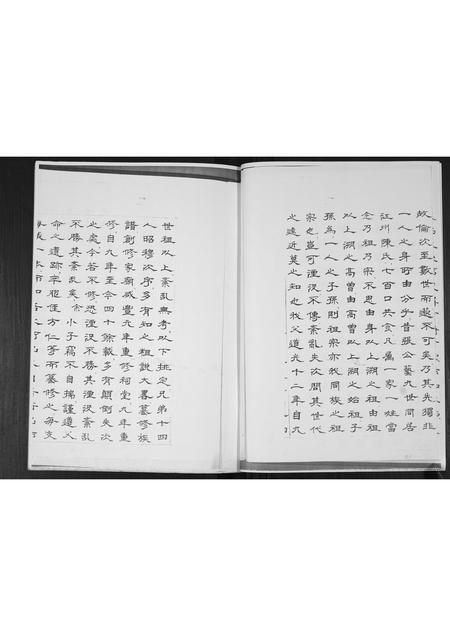 故倫次至數世而遂不可矣乃其先獨非
一人之身可由分乎昔張公藝九世同居
江州陳氏七百口共食凡屬一家一姓當
念乃祖乃宗不思由身以上溯之祖由祖
以上溯之高曾由高曾以上溯之始祖子
孫為一人之子孫則祖宗亦我同族之祖
宗也豈可湮沒不傳紊亂失次間其世代
之遠近莫之知也我父道光十二年自九
世祖以上紊亂無考以下排定兄弟十四
人昭穆次序多有知之祖說大畧墓修族
譜創修家廟咸豐九年重修祠堂九年重
修自九年至今四十餘載多有顛倒失次
之處今若不修恐湮沒不勝其湮沒紊亂
不勝其紊亂矣余小子竊不自揣謹遵父
命之遺跡宗胞侄方仁等而纂修之每支